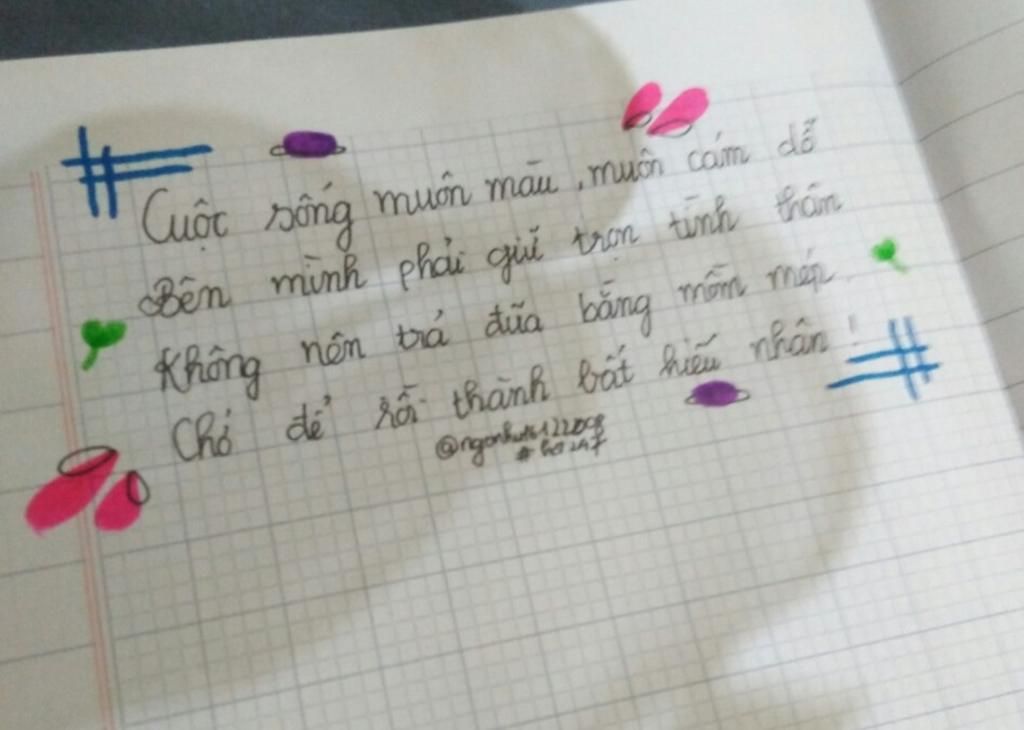 Cuộc sống muôn màu, muôn cám dỗ
Bên mình phải giữ trọn tình thân
Không nên trả đũa bằng mồm mép
Chớ để rồi thành bất hiếu nhân!